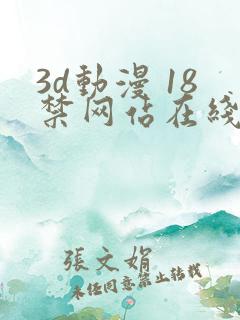 3d動漫 18
禁网佔在綫
張文娟
未经同意禁止转载